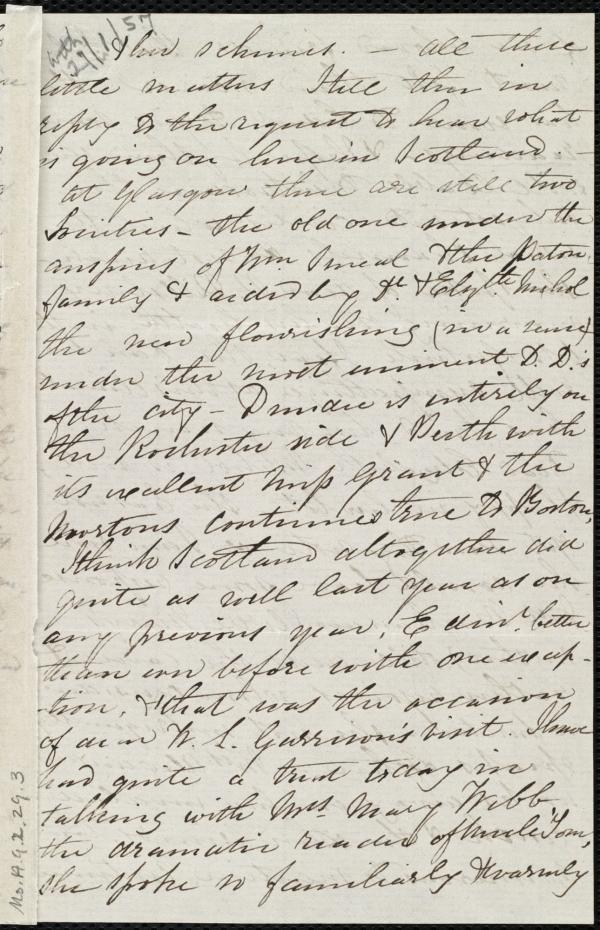 with
2/1/57
& her schemes. — all these
little matters I tell thee in
reply to the request to hear what
is going on here in Scotland. —
at Glasgow there are still two
Societies — the old one under the
auspices of Wm Smeal & the Paton
family & aided by Dr. & Elizth. Nichol
the new flourishing (in a sense)
under the most eminent D. D.'s
of the city — Dundee is entirely on
the Rochester side & Perth with
its excellent Miss Grant & the
Mortons continues true to Boston,
I think Scotland altogether did
quite as well last year as on
any previous year, Edinr. better
than ever before with one excep-
-tion, & that was the occasion
of dear W. L. Garrison's visit. I have
had quite a treat today in
talking with Mrs. Mary Webb,
the dramatic reader of Uncle Tom,
she spoke so familiarly & warmly
Ms.A.9.2.29.3